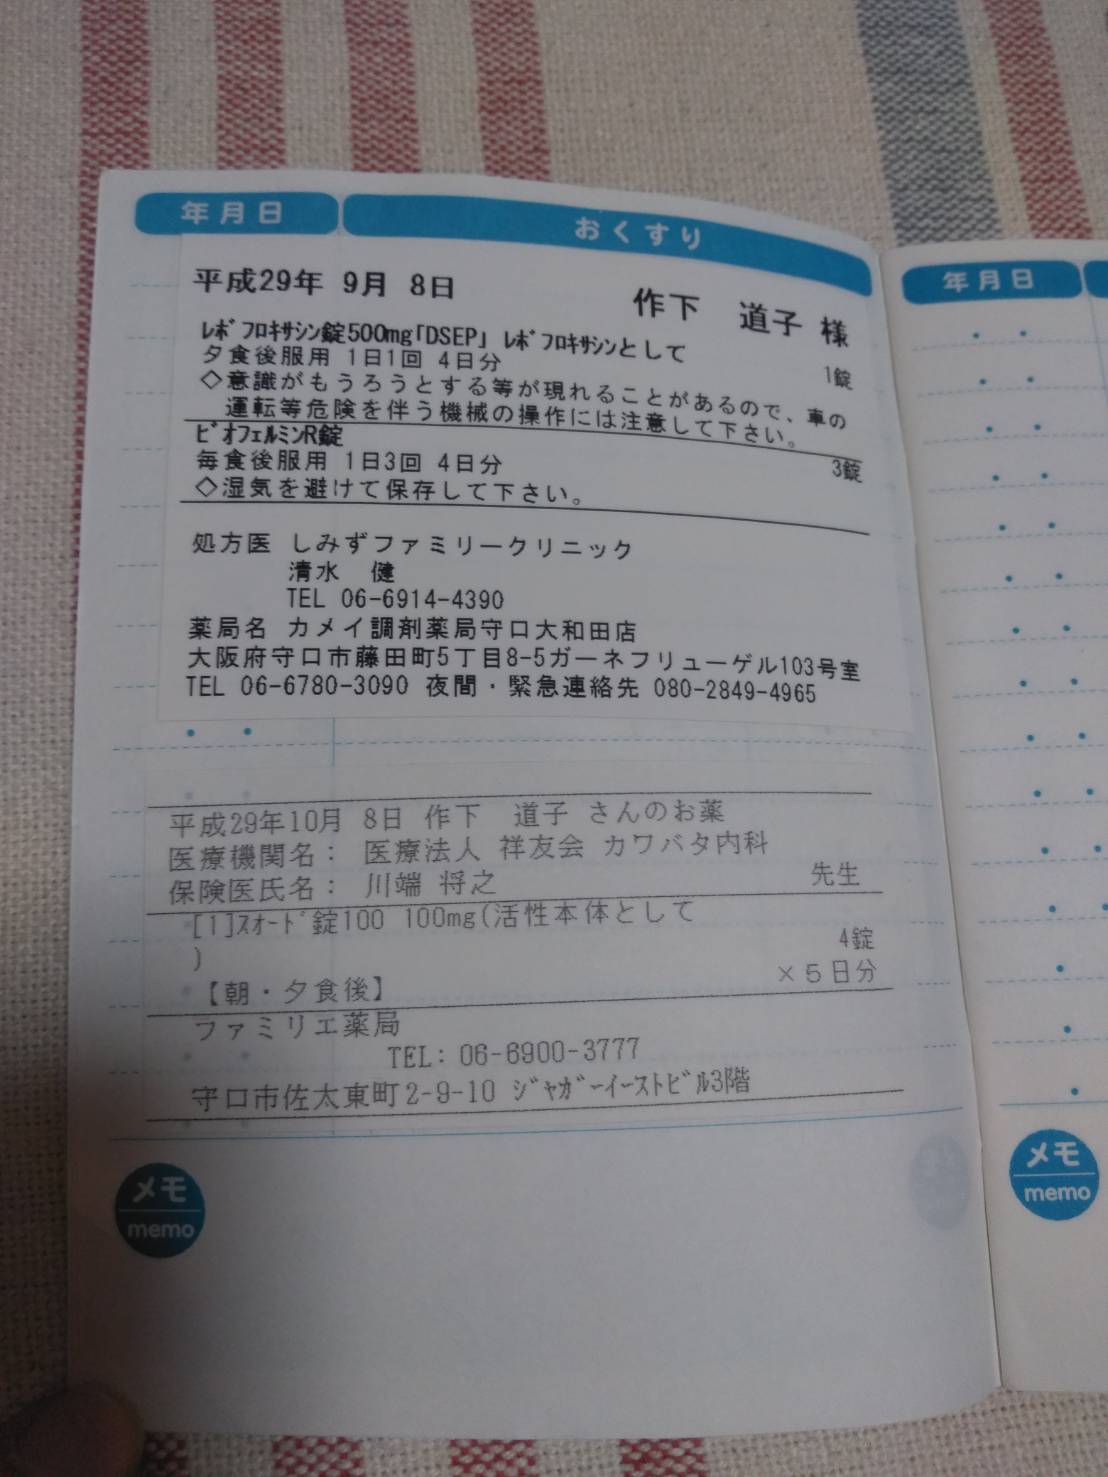 年月日
おくすり
平成29年 9月 8日
作下 道子 様
ﾚﾎﾞﾌﾛｷｻｼﾝ錠500mg｢DSEP｣ ﾚﾎﾞﾌﾛｷｻｼﾝとして
1錠
夕食後服用 1日1回 4日分
◇意識がもうろうとする等が現れることがあるので、車の
運転等危険を伴う機械の操作には注意して下さい。
ﾋﾞｵﾌｪﾙﾐﾝR錠
3錠
毎食後服用 1日3回 4日分
◇湿気を避けて保存して下さい。
処方医 しみずファミリークリニック
清水 健
TEL 06-6914-4390
薬局名 カメイ調剤薬局守口大和田店
大阪府守口市藤田町5丁目8-5ガーネフリューゲル103号室
TEL 06-6780-3090 夜間・緊急連絡先 080-2849-4965
平成29年10月 8日 作下 道子 さんのお薬
医療機関名： 医療法人 祥友会 カワバタ内科
保険医氏名： 川端 将之 先生
[1]ｽｵｰﾄﾞ錠100 100mg(活性本体として
) 4錠
【朝・夕食後】 ×５日分
ファミリエ薬局
TEL：06-6900-3777
守口市佐太東町2-9-10 ｼﾞｬｶﾞｰｲｰｽﾄﾋﾞﾙ3階
メモ
memo
年月日
メモ
memo